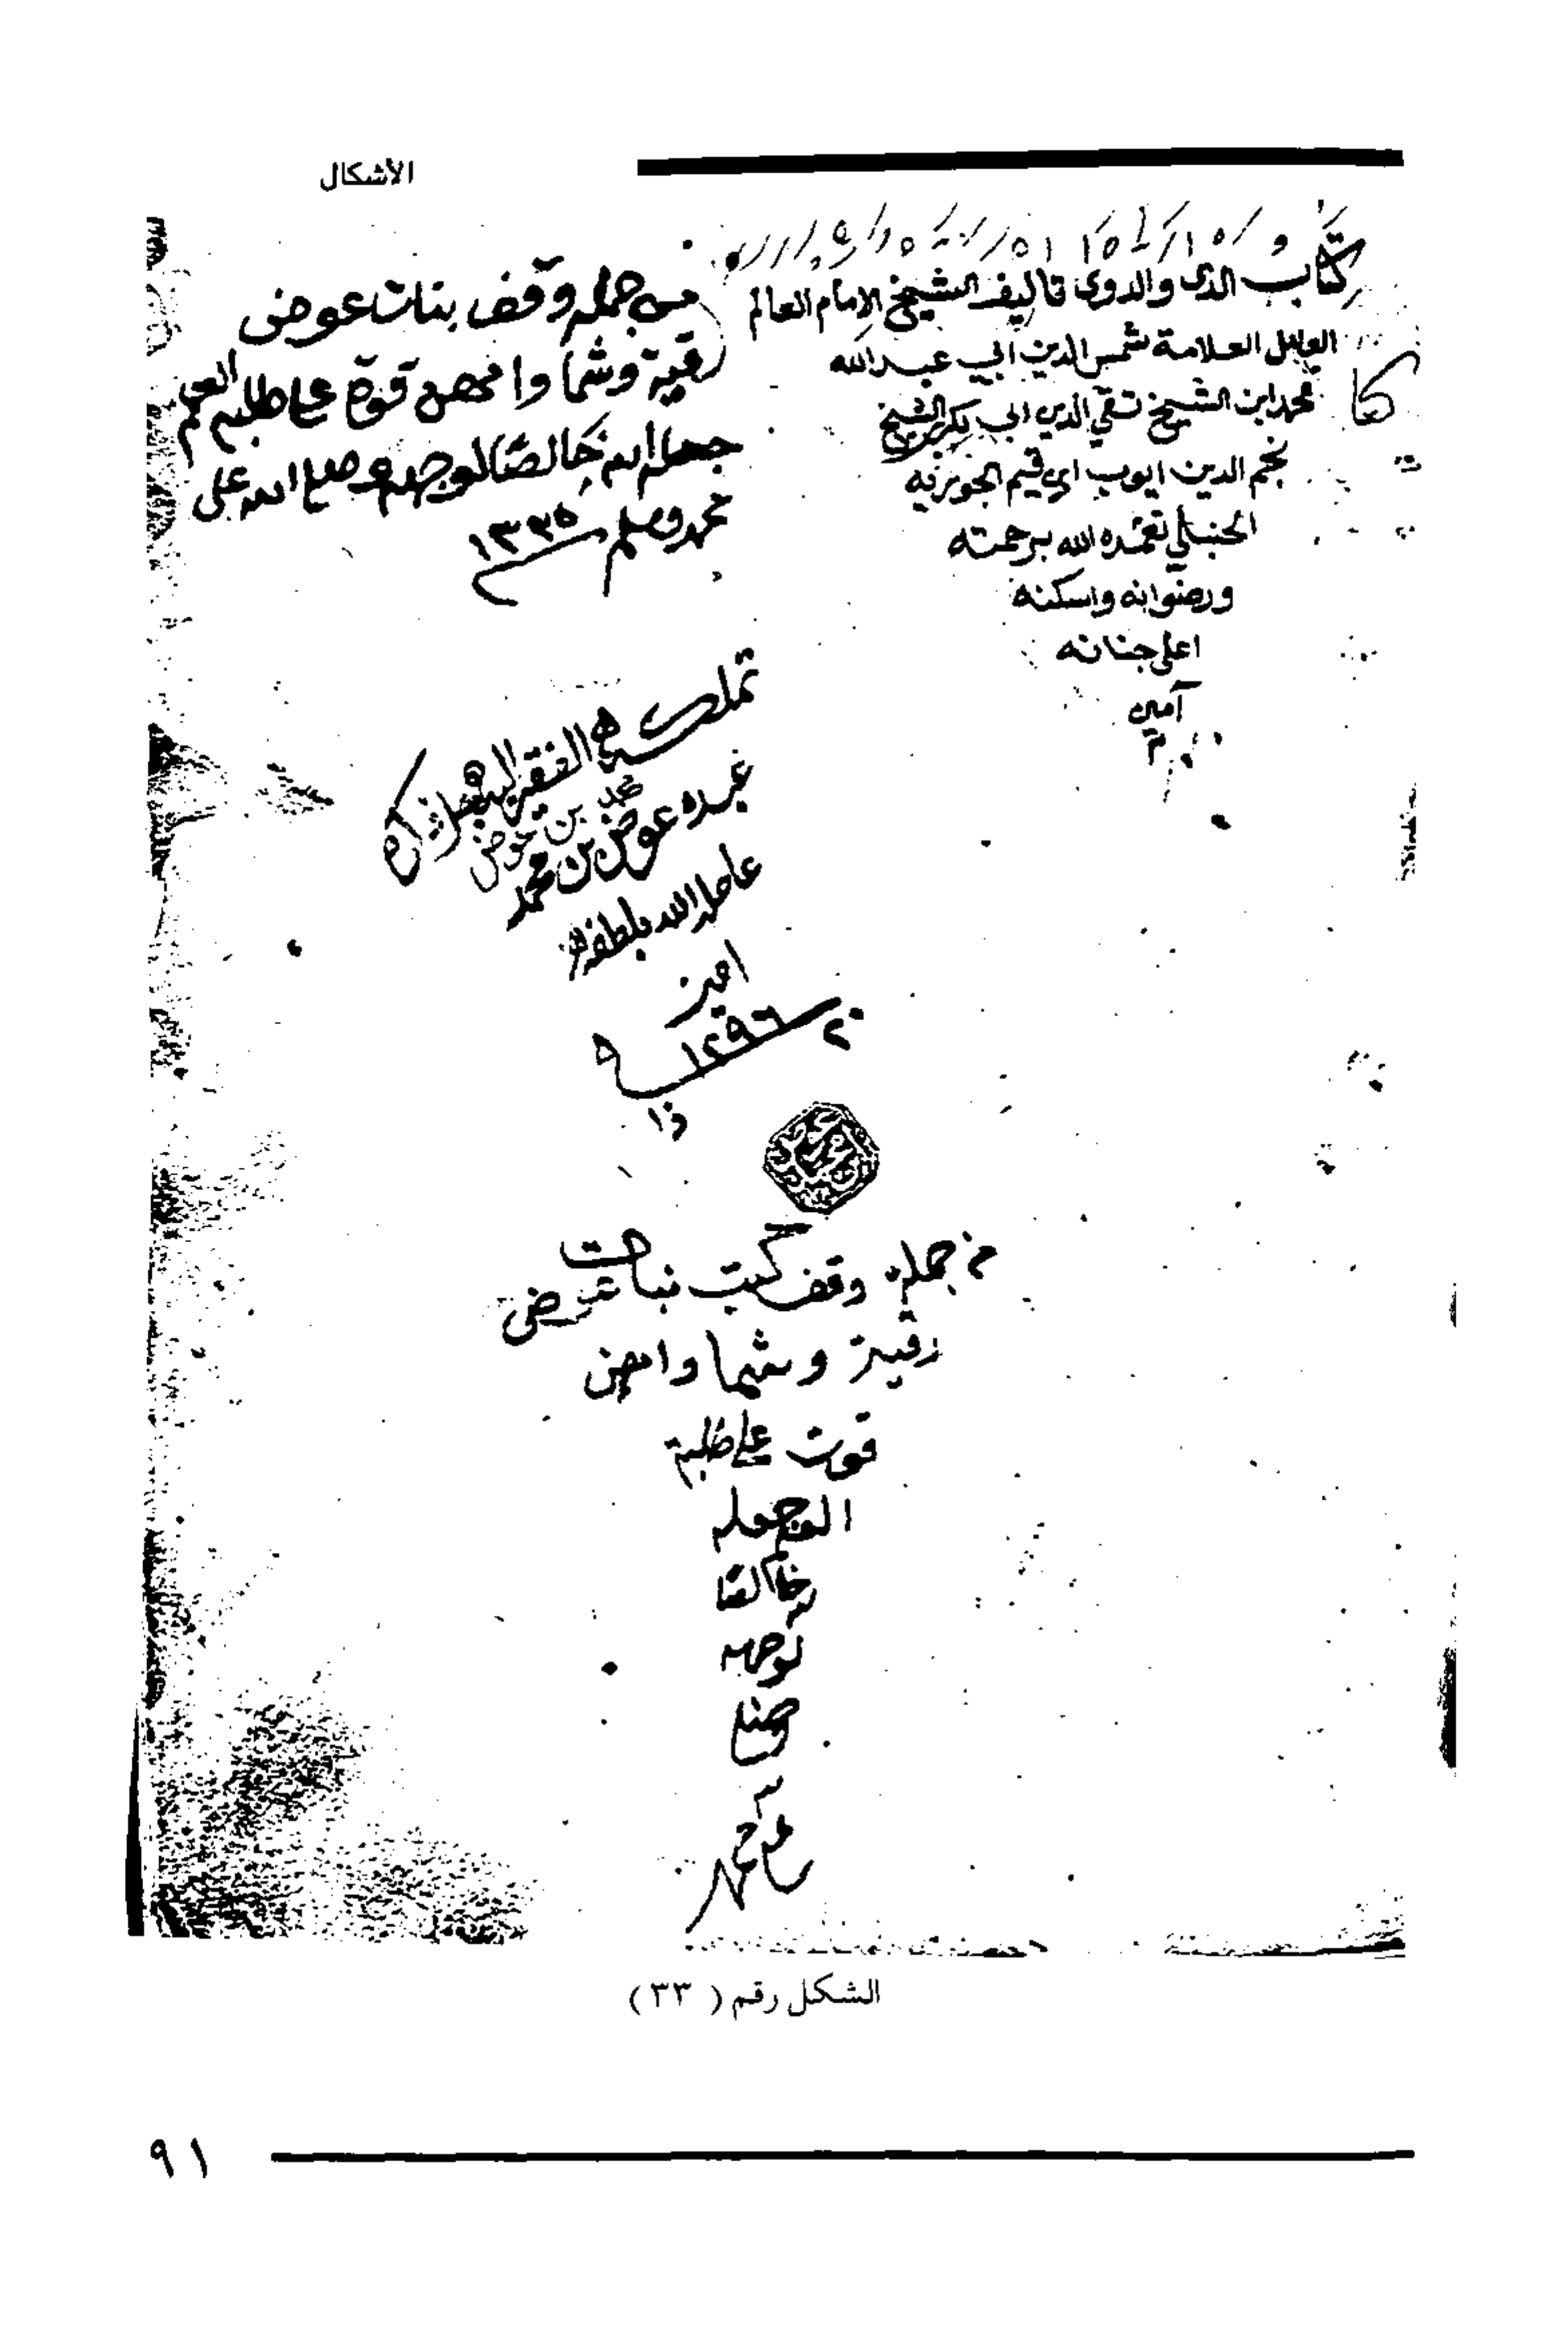 الأشكال
كتاب الدى والدوى تاليف الشيخ الامام العالم
العامل العلامة شمس الدين ابي عبدالله
محمد ابن الشيخ تقي الدين ابي بكر الشيخ
نجم الدين ايوب ابن قيم الجوزيه
الحنبلي تغمده الله برحمته
ورضوانه واسكنه
اعلى جنانه
آمين
م
من جملة وقف بنات عوض
رقية وشما وامهن قوة على طلبه العلم
جعله الله خالصا لوجهه وصلى الله على
محمد وسلم ١٣٣٥
تملك هذا الفقير اليه
عبده عوض بن محمد
محمد بن عوض
عامله الله بلطفه
امين
٢٠ ١٢٩٦
ذا
من جملة وقف كتب بنات عوض
رقية وشما وامهن
قوت على طلبة
العلم جعله
خالصا
لوجهه
على محمد
الشكل رقم ( ٣٣ )
٩١